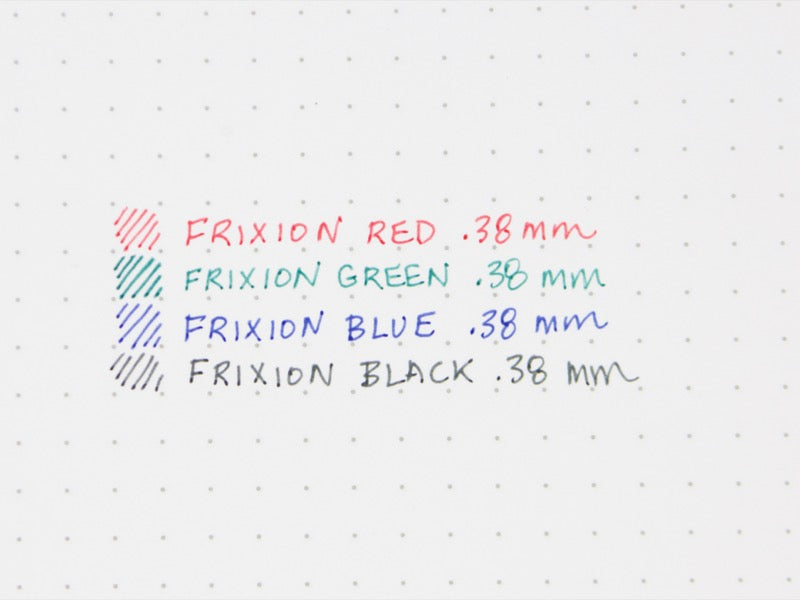 FRIXION RED .38 mm
FRIXION GREEN .38 mm
FRIXION BLUE .38 mm
FRIXION BLACK .38 mm